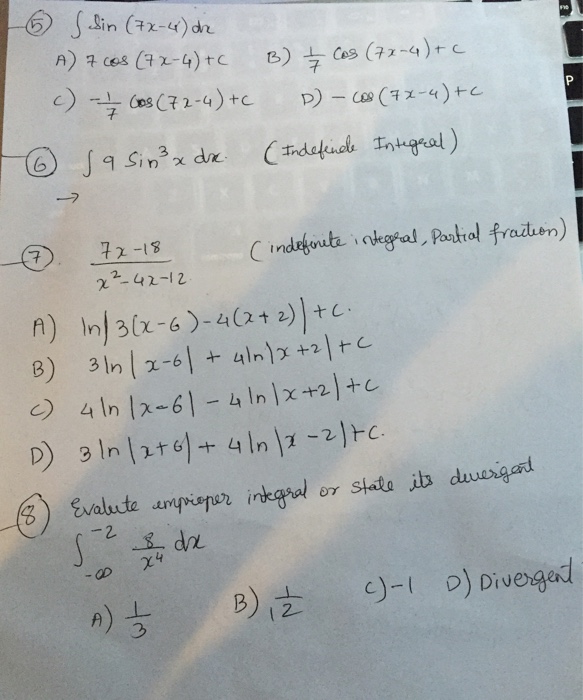 5) ∫ Sin (7x-4) dx
A) 7 cos (7x-4)+C B) 1/7 Cos (7x-4)+C
C) -1/7 Cos (7x-4)+C D) - Cos (7x-4)+C
6) ∫ 9 Sin³ x dx. (Indefinite Integral)
→
7) 7x-18 / x²-4x-12 (indefinite integral, Partial fraction)
A) ln|3(x-6)-4(x+2)|+C.
B) 3ln|x-6| + 4ln|x+2|+C
C) 4ln|x-6| - 4ln|x+2|+C
D) 3ln|x+6| + 4ln|x-2|+C.
8) Evalute empioper integral or state its devergent
∫_{-∞}^{-2} 8/x⁴ dx
A) 1/3 B) 1/12 C) -1 D) Divergent
P